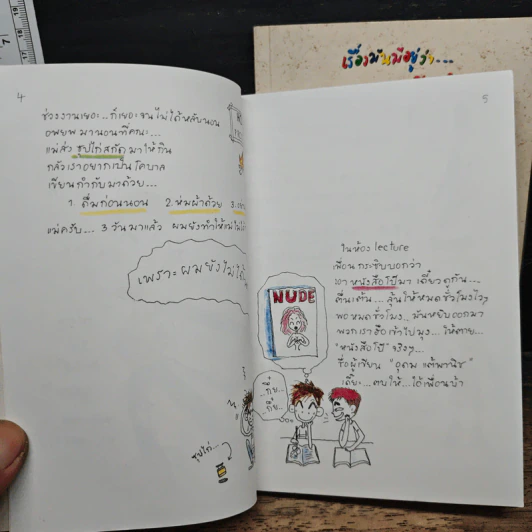 เรื่องมันมีอยู่ว่า...
4
ช่วงงานเยอะ.. ก็เยอะจนไม่ได้หลับนอน
อพยพมานอนที่คณะ...
แม่ส่ง ซุปไก่สกัด มาให้กิน
กลัวเราอยากเป็นโคบาล
เขียนกำกับมาด้วย...
1. ดื่มก่อนนอน 2. ห่มผ้าด้วย 3.
แม่ครับ... 3 วันมาแล้ว ผมยังทำให้แม่ไม่ได้
เพราะผมยังไม่ได้
ซุปไก่...
5
ในห้อง lecture
เพื่อนกระซิบบอกว่า
เอา หนังสือโป๊ มา เดี๋ยวดูกัน...
ตื่นเต้น... ลุ้นให้หมดชั่วโมงไวๆ
พอหมดชั่วโมง.. มันหยิบออกมา
พวกเราฮือเข้าไปมุง... ให้ตาย...
"หนังสือโป๊" จริงๆ...
ชื่อผู้เขียน "อุดม แต้พานิช"
เดี๊ยะ... ตบให้... ไอ้เพื่อนบ้า
NUDE
..กึ๋ย..
..กึ๋ย..